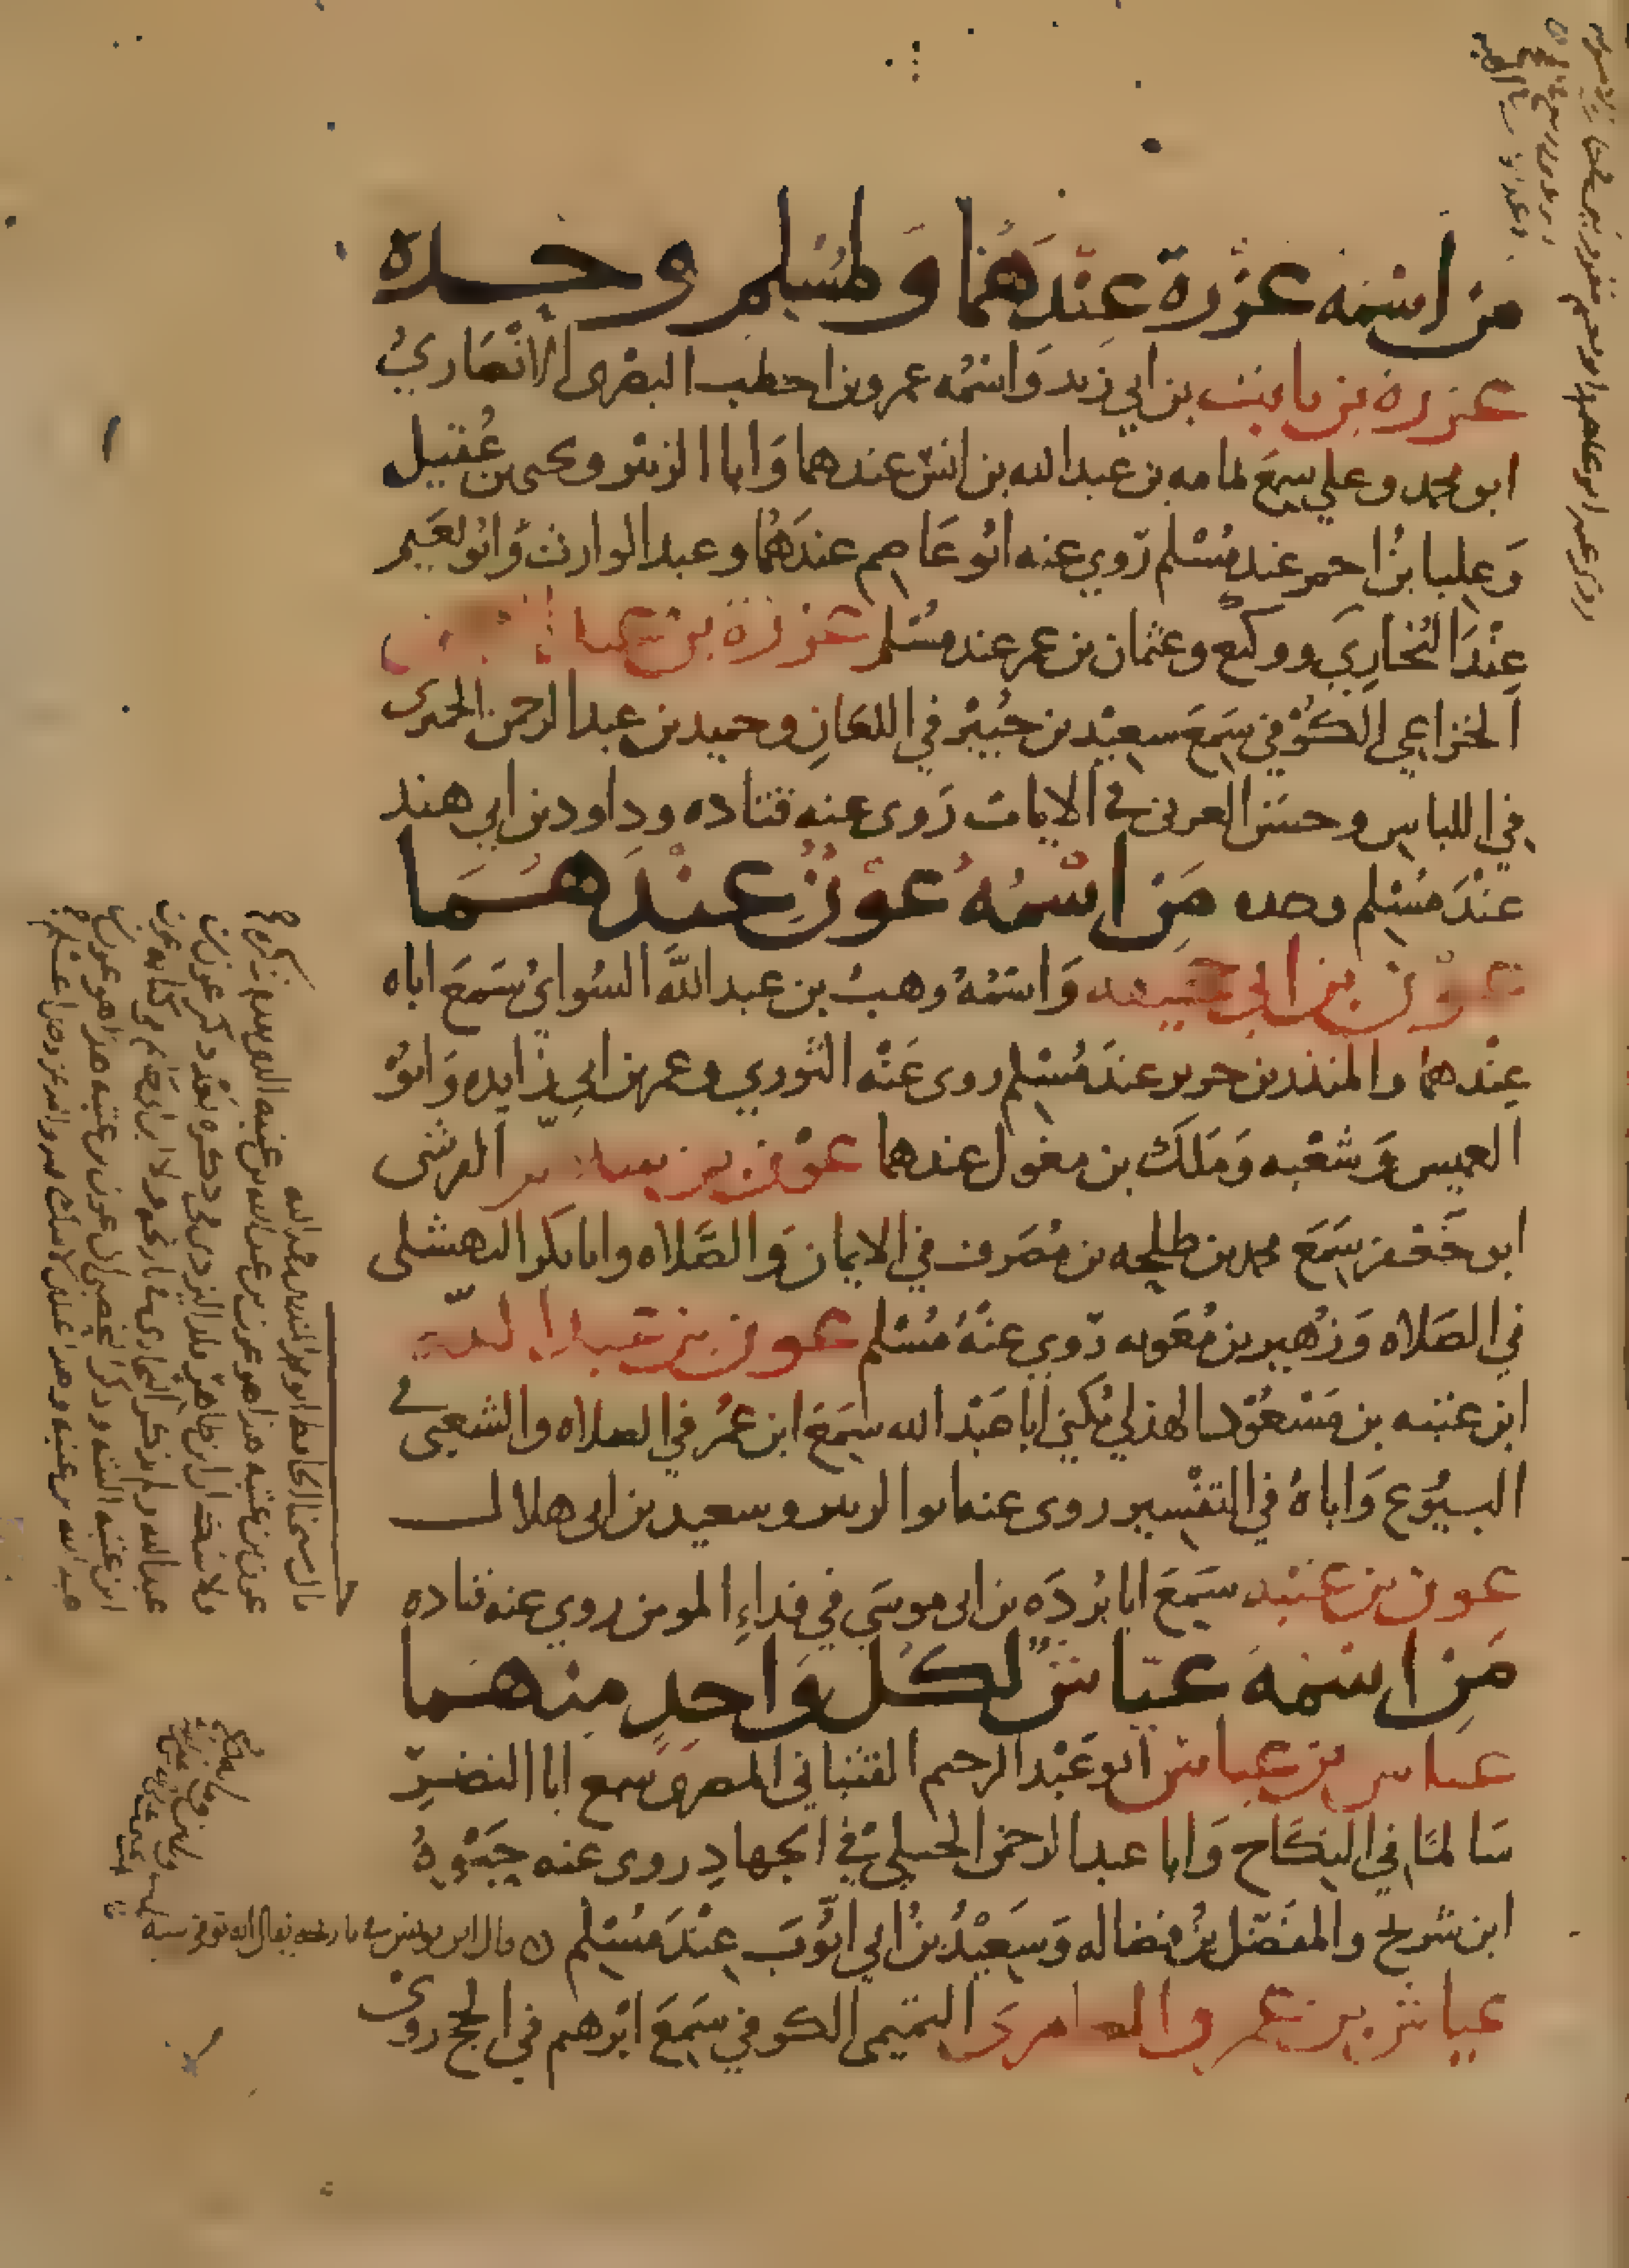 من اسمه عزرة عندهما ولمسلم وحده
عزرة بن ثابت بن ابي زيد واسمه عمرو بن احطب البصرى الانصاري
ابو محمد وعلي سمع ثمامه بن عبد الله بن انس عندهما وابا الزبير ويحيى بن عُقيل
وعلبا بن احمر عند مسلم روي عنه ابو عاصم عندهما وعبد الوارث وابو نعيم
عند البخاري ووكيع وعثمان بن عمر عند مسلم عزرة بن عبد الرحمن
الخزاعي الكوفي سمع سعيد بن جبير في اللعان وحميد بن عبد الرحمن الحميرى
في اللباس وحسن العرني في الايات روى عنه قتاده وداود بن ابي هند
عند مسلم وحده من اسمه عون عندهما
عون بن ابي جحيفه واسمه وهب بن عبد الله السوائي سمع اباه
عندهما والمنذر بن جرير عند مسلم روى عنه الثوري وعمر بن ابي زايده وابو
العميس وشعبه وملك بن مغول عندهما عون بن سلام القرشى
ابو جعفر سمع محمد بن طلحه بن مصرف في الايمان والصلاه وابا بكر النهشلى
في الصلاه وزهير بن معويه روي عنه مسلم عون بن عبد الله
ابن عتبه بن مسعود الهذلي يكني ابا عبد الله سمع ابن عمر في الصلاه والشعبى في
البيوع واباه في التفسير روى عنه ابو الزبير وسعيد بن ابى هلال
عون بن عتبه سمع ابا برده بن ابى موسى في فداء المومن روي عنه قتاده
من اسمه عياش لكل واحد منهما
عياش بن عباس ابو عبد الرحيم القتباني المصرى سمع ابا النضر
سالما في النكاح وابا عبد الرحمن الحبلي في الجهاد روى عنه حيوه
ابن شريح والمفضل بن فضاله وسعيد بن ابي ايوب عند مسلم ن قال ابن يونس في تاريخه يقال انه توفي سنه
عياش بن عمرو العامرى التميمى الكوفي سمع ابرهيم في الحج روى